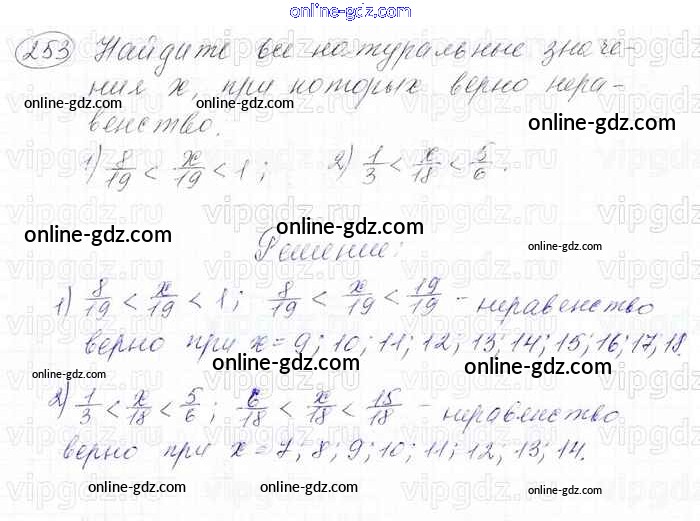 online-gdz.com
253 Найдите все натуральные значе-
ния x, при которых верно нера-
online-gdz.com online-gdz.com online-gdz.com
венство.
1) 8/19 < x/19 < 1; 2) 1/3 < x/18 < 5/6.
online-gdz.com online-gdz.com online-gdz.com
Решение:
1) 8/19 < x/19 < 1; 8/19 < x/19 < 19/19 - неравенство
верно при x = 9; 10; 11; 12; 13; 14; 15; 16; 17; 18.
online-gdz.com online-gdz.com online-gdz.com
2) 1/3 < x/18 < 5/6; 6/18 < x/18 < 15/18 - неравенство
верно при x = 7, 8; 9; 10; 11; 12, 13; 14.
online-gdz.com online-gdz.com online-gdz.com